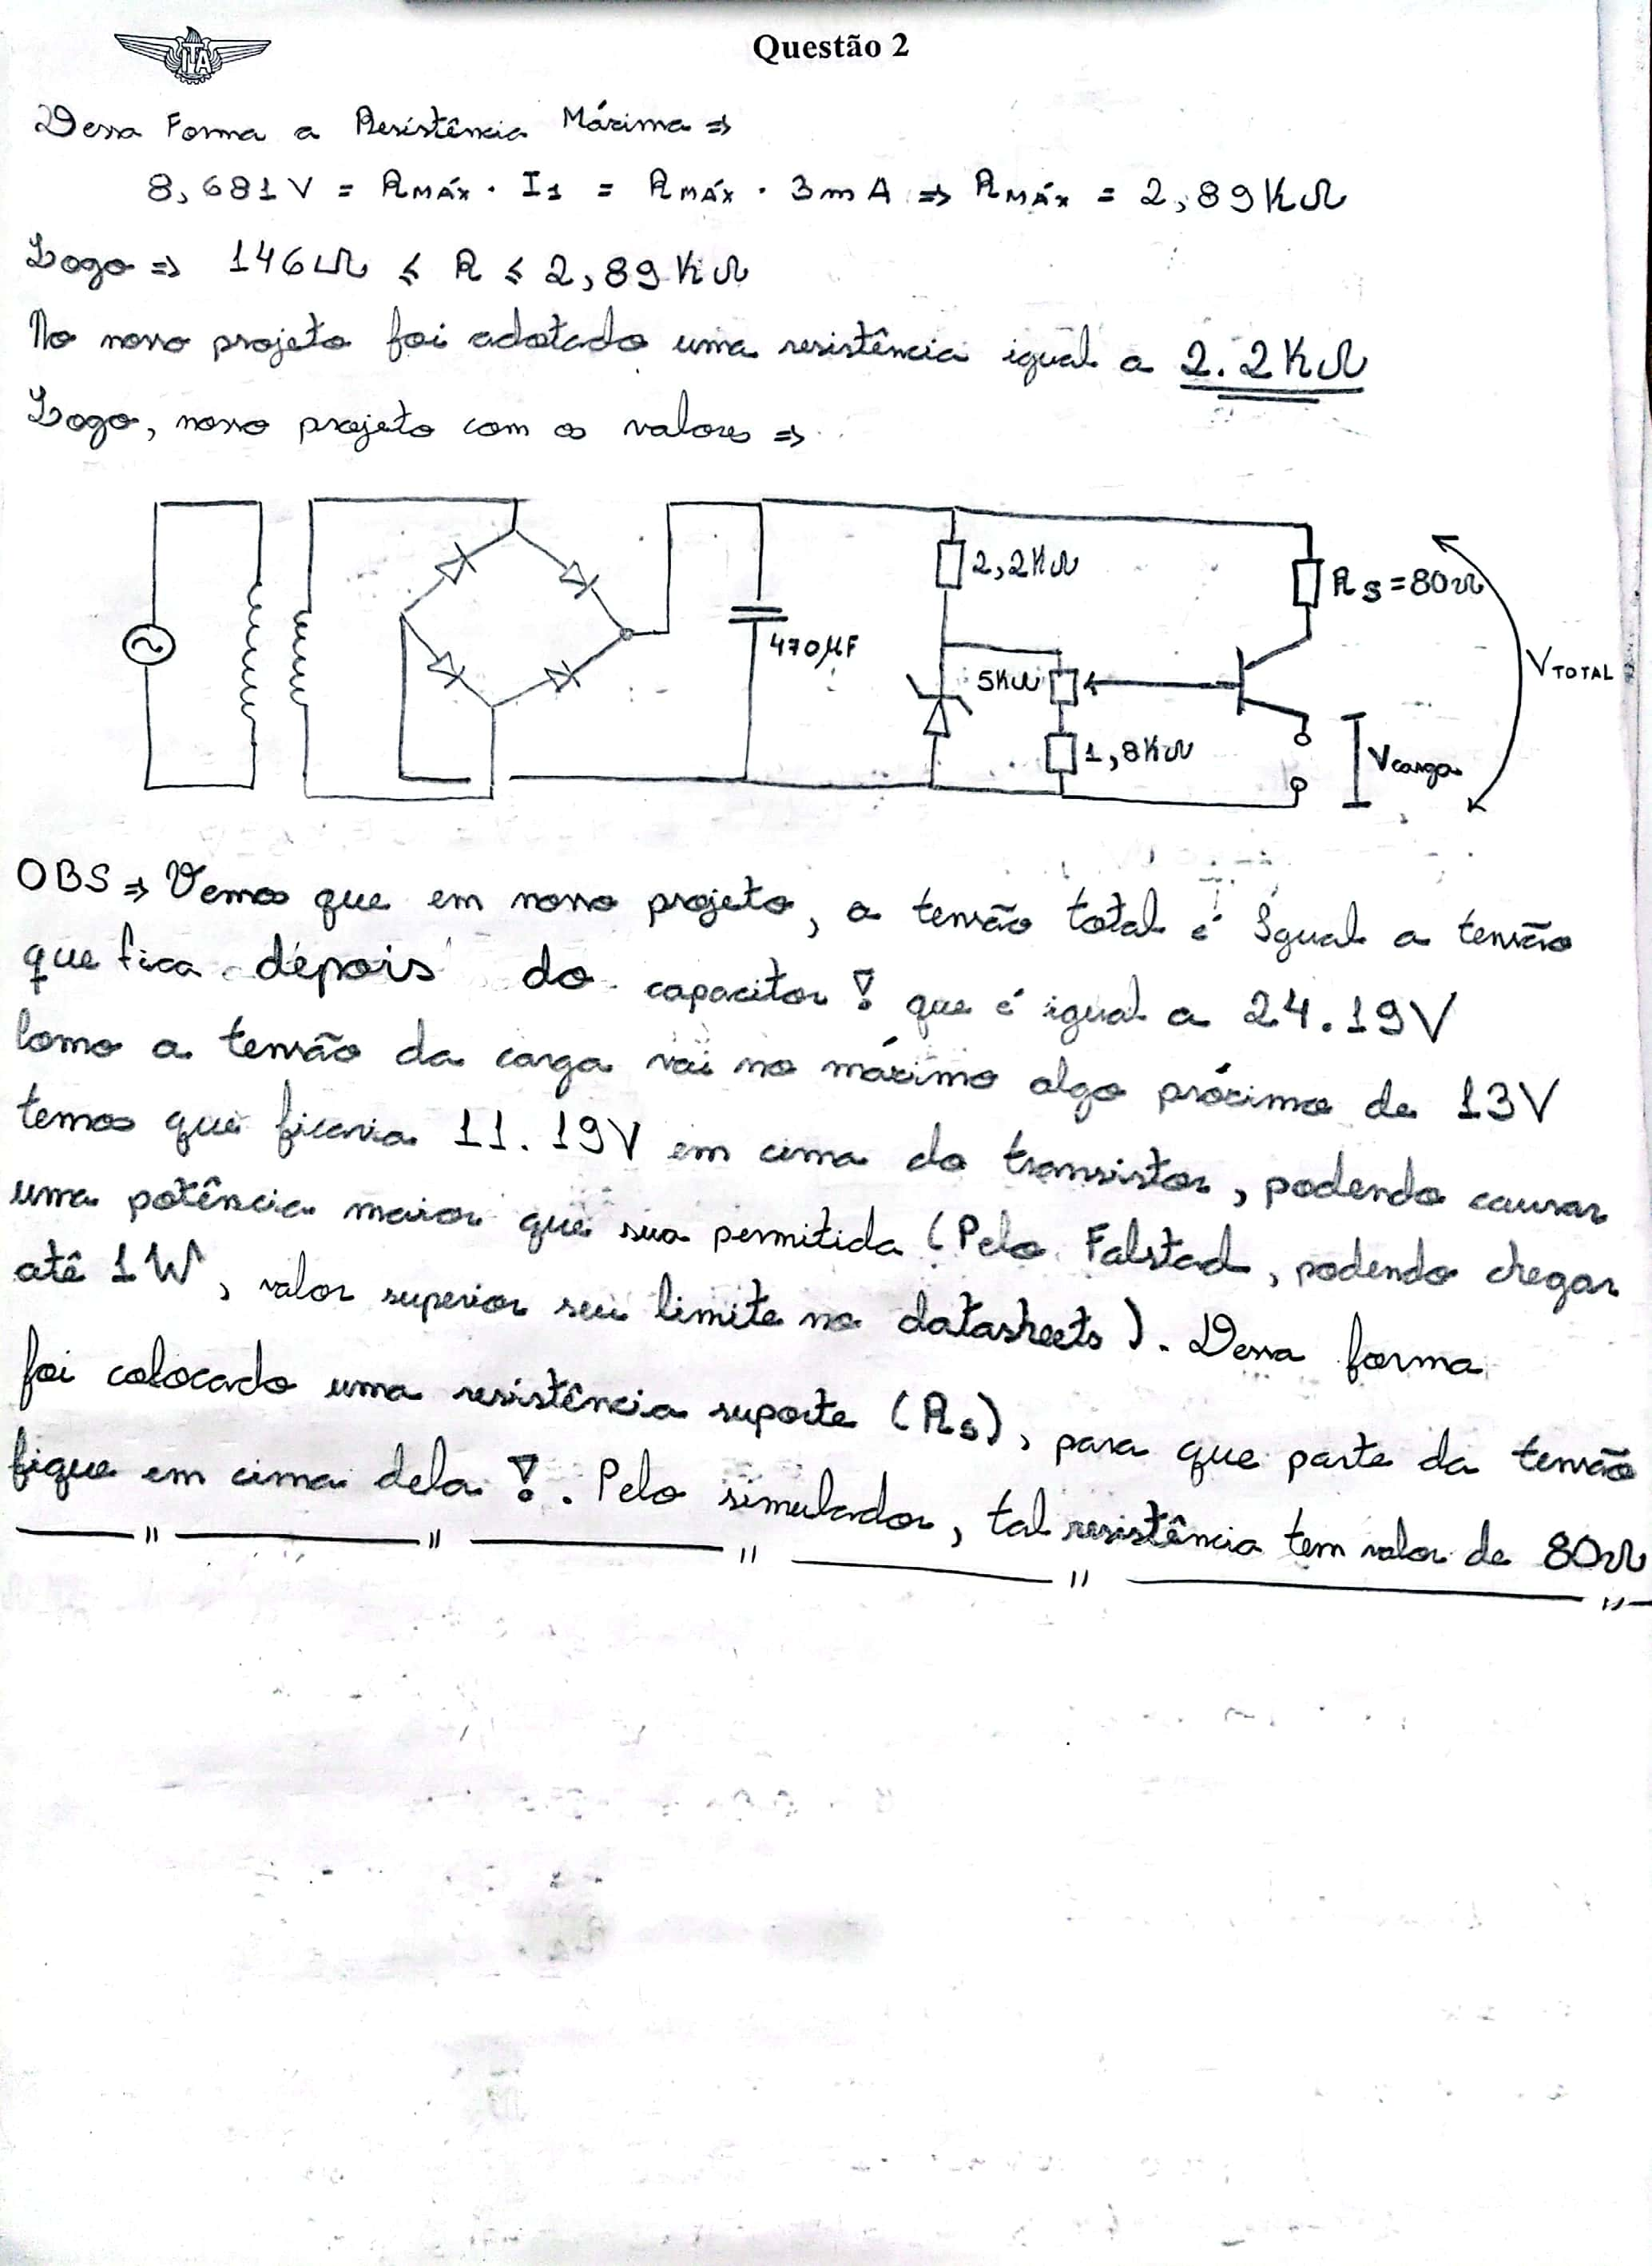 ITA
Questão 2
Dessa Forma a Resistência Máxima ⇒
8,681V = RMÁX · I1 = RMÁX · 3mA ⇒ RMÁX = 2,89KΩ
Logo ⇒ 146Ω ≤ R ≤ 2,89KΩ
No nosso projeto foi adotado uma resistência igual a 2.2KΩ
Logo, nosso projeto com os valores ⇒
2,2KΩ
RS=80Ω
470µF
5KΩ
VTOTAL
1,8KΩ
Vcarga
OBS ⇒ Vemos que em nosso projeto, a tensão total é Igual a tensão
que fica depois do capacitor! que é igual a 24.19V
Como a tensão da carga vai no máximo algo próximo de 13V
temos que ficaria 11.19V em cima do transistor, podendo causar
uma potência maior que sua permitida (Pelo Falstad, podendo chegar
até 1W, valor superior seu limite no datasheets). Dessa forma
foi colocado uma resistência suporte (RS), para que parte da tensão
fique em cima dela!. Pelo simulador, tal resistência tem valor de 80Ω